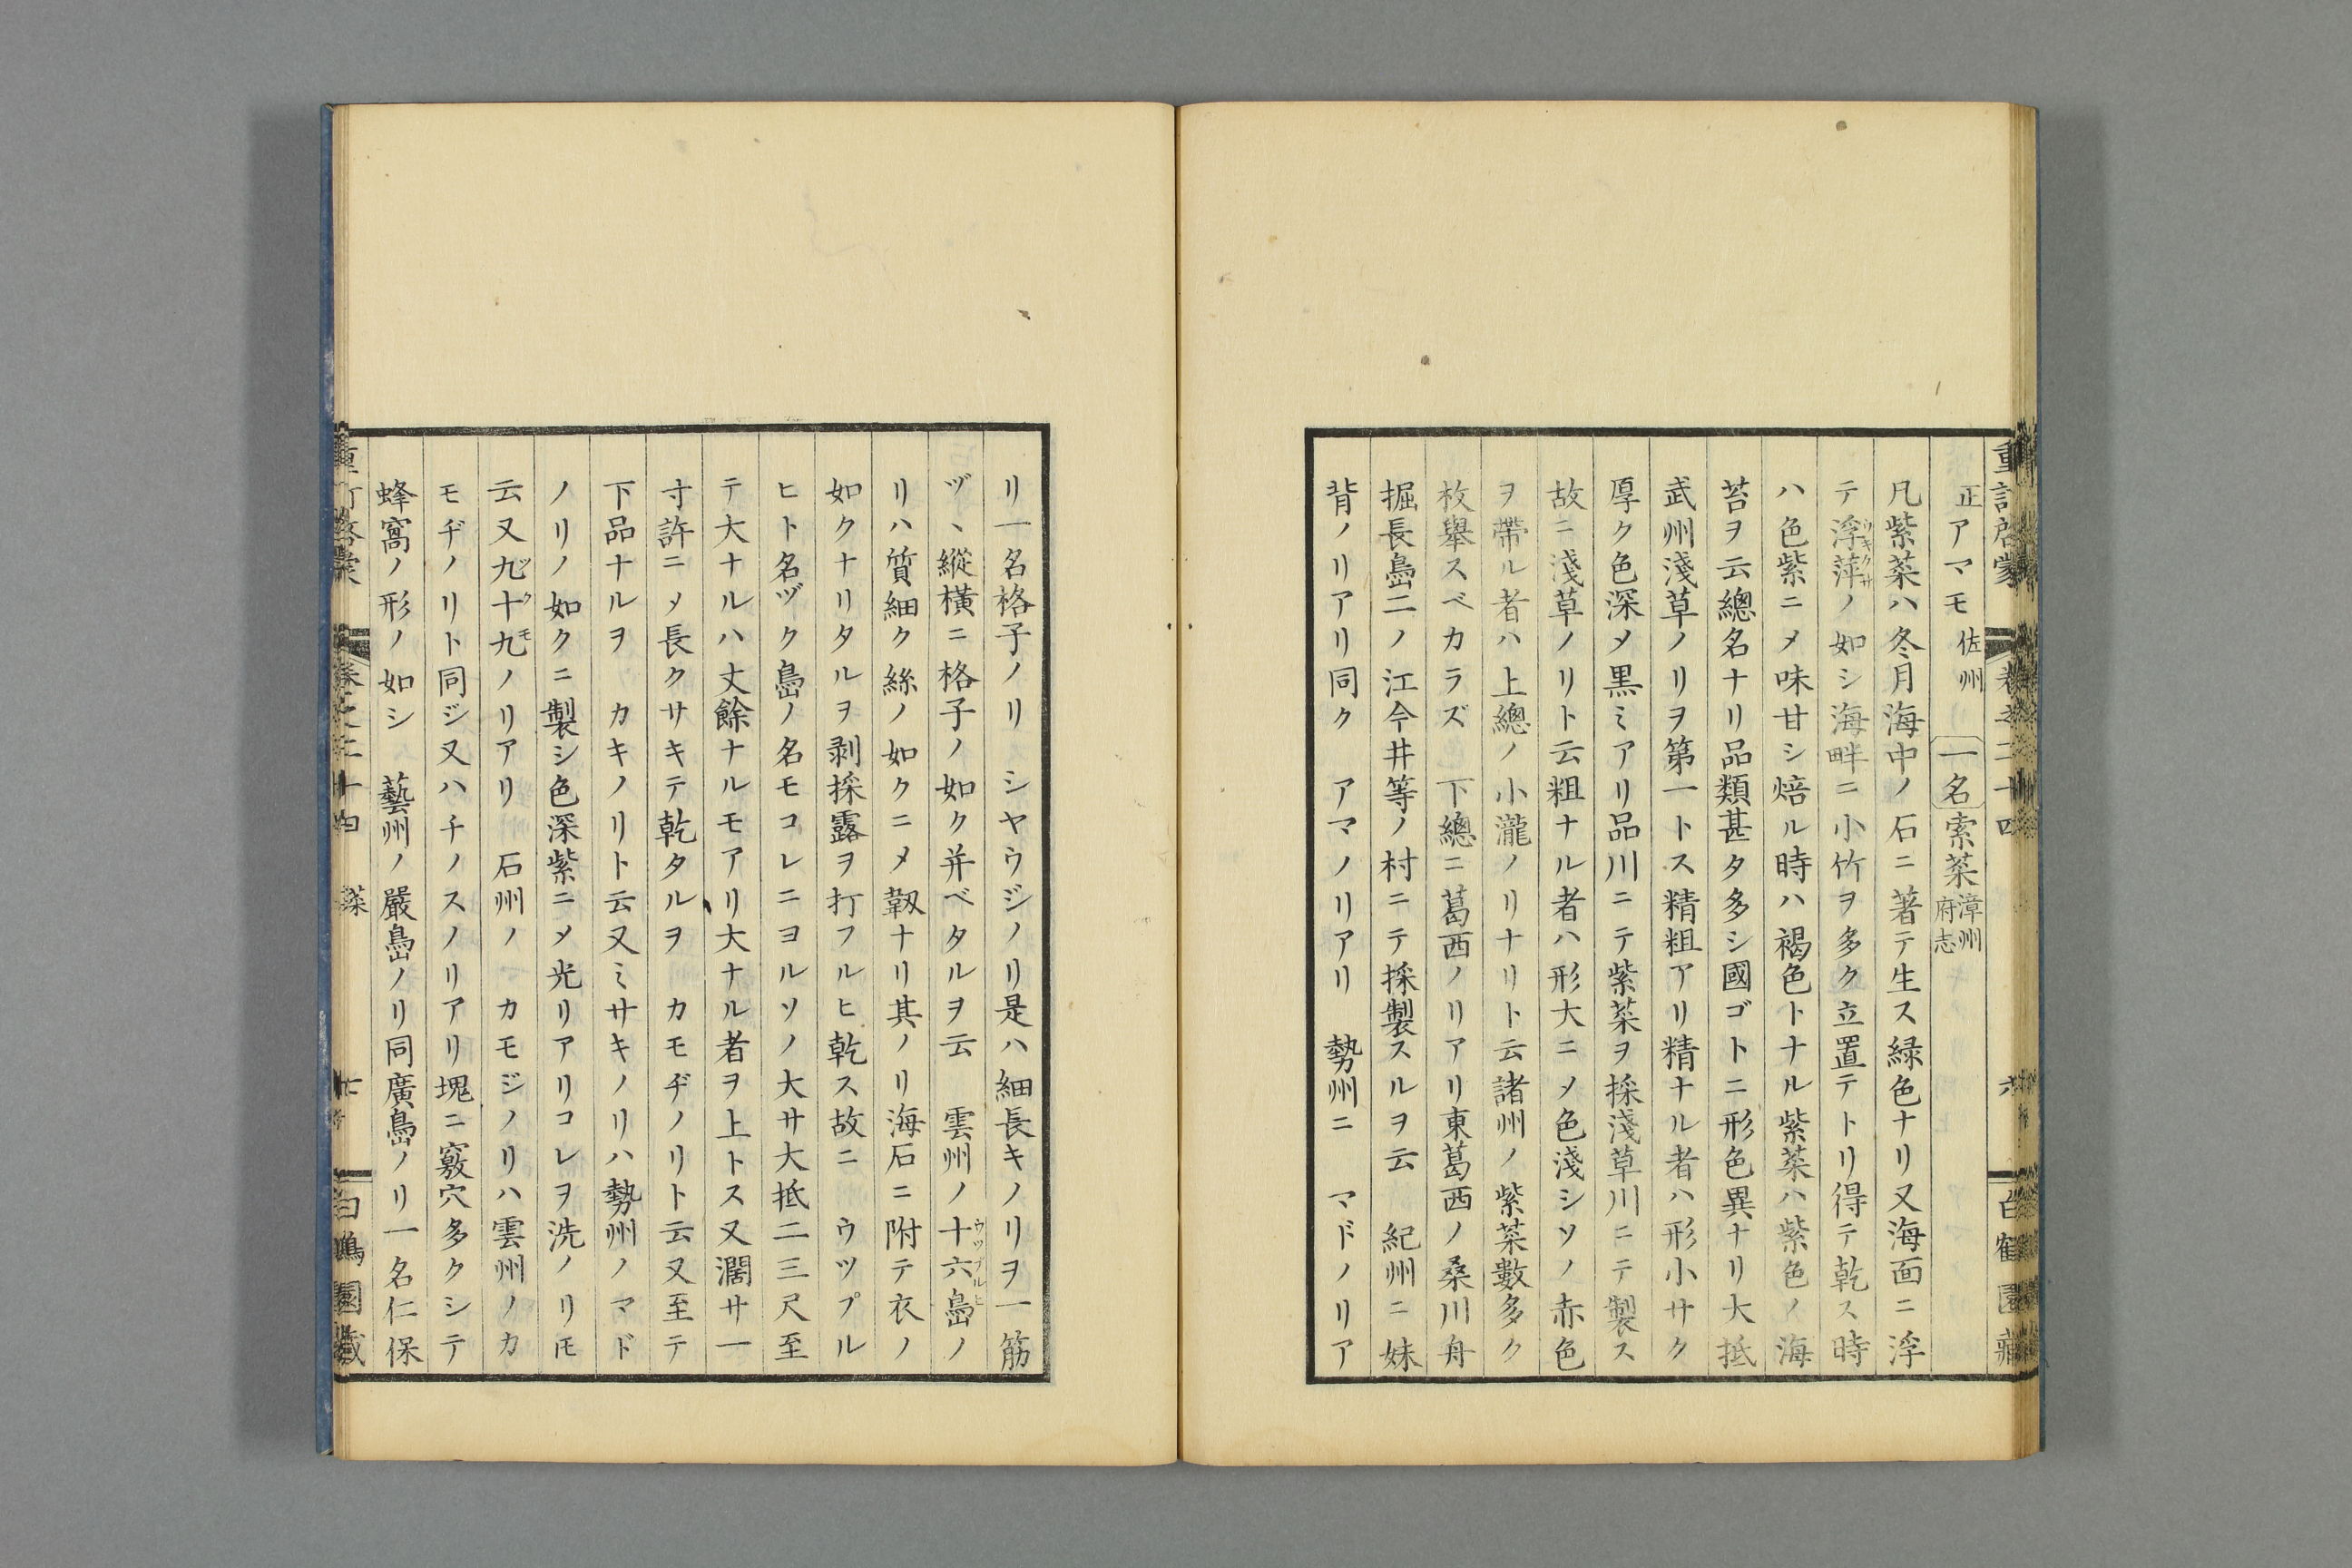 重訂啓蒙 卷之二十四 六 白鶴園藏
正アマモ佐州 一名 索菜漳州府志
凡紫菜ハ冬月海中ノ石ニ著テ生ス緑色ナリ又海面ニ浮
テ浮萍ウキクサノ如シ海畔ニ小竹ヲ多ク立置テトリ得テ乾ス時
ハ色紫ニメ味甘シ焙ル時ハ褐色トナル紫菜ハ紫色ノ海
苔ヲ云總名ナリ品類甚タ多シ國ゴトニ形色異ナリ大抵
武州淺草ノリヲ第一トス精粗アリ精ナル者ハ形小サク
厚ク色深メ黒ミアリ品川ニテ紫菜ヲ採淺草川ニテ製ス
故ニ淺草ノリト云粗ナル者ハ形大ニメ色淺シソノ赤色
ヲ帶ル者ハ上總ノ小瀧ノリナリト云諸州ノ紫菜數多ク
枚舉スベカラズ 下總ニ葛西ノリアリ東葛西ノ桑川舟
掘長島二ノ江今井等ノ村ニテ採製スルヲ云 紀州ニ妹
背ノリアリ同ク アマノリアリ 勢州ニ マドノリア
リ一名格子ノリ シヤウジノリ是ハ細長キノリヲ一筋
ヅヽ縱横ニ格子ノ如ク并ベタルヲ云 雲州ノ十六島ウツプルヒノ
リハ質細ク絲ノ如クニメ靱ナリ其ノリ海石ニ附テ衣ノ
如クナリタルヲ剥採露ヲ打フルヒ乾ス故ニ ウツプル
ヒト名ヅク島ノ名モコレニヨルソノ大サ大抵二三尺至
テ大ナルハ丈餘ナルモアリ大ナル者ヲ上トス又濶サ一
寸許ニメ長クサキテ乾タルヲ カモヂノリト云又至テ
下品ナルヲ カキノリト云又ミサキノリハ勢州ノマド
ノリノ如クニ製シ色深紫ニメ光リアリコレヲ洗ノリモ
云又九十九ヅクモノリアリ 石州ノ カモジノリハ雲州ノカ
モヂノリト同ジ又ハチノスノリアリ塊ニ竅穴多クシテ
蜂窩ノ形ノ如シ 藝州ノ嚴島ノリ同廣島ノリ一名仁保
重訂啓蒙 卷之二十四 菜 七 白鶴園藏